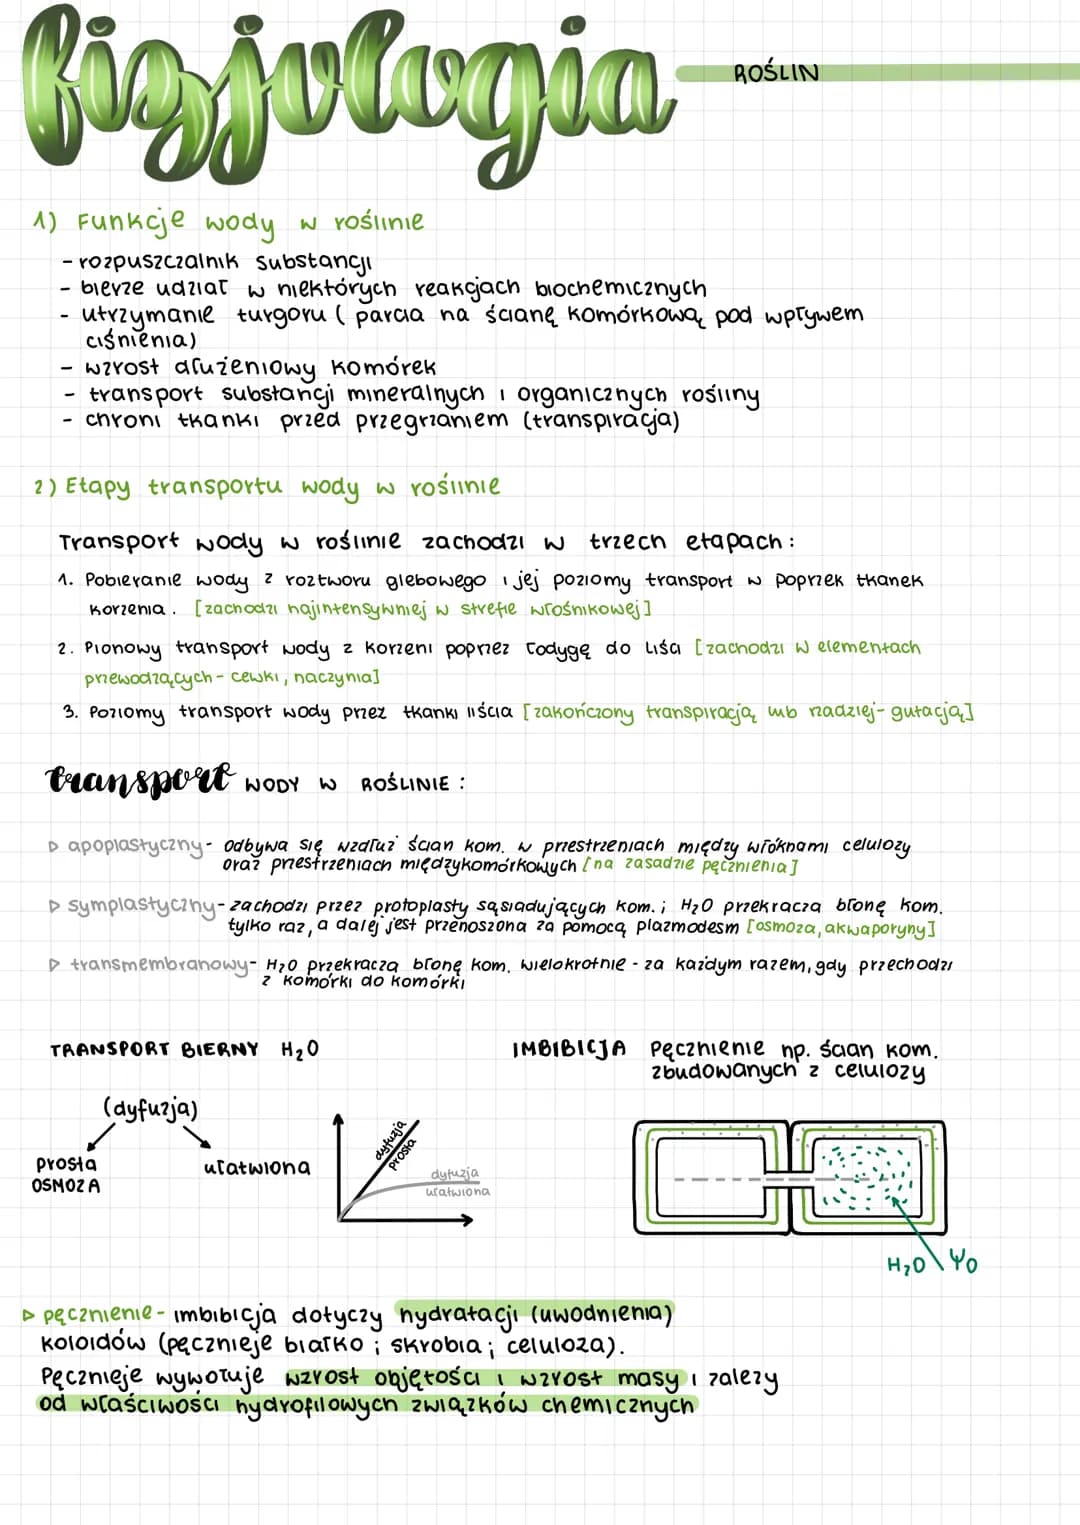 fizjologia ROŚLIN
1) Funkcje wody w roślinie
- rozpuszczalnik substancji
- bierze udział w niektórych reakcjach biochemicznych
- utrzymanie turgoru ( parcia na ścianę komórkową pod wpływem
ciśnienia)
- wzrost dłużeniowy komórek
- transport substancji mineralnych i organicznych rośliny
- chroni tkanki przed przegrzaniem (transpiracja)
2) Etapy transportu wody w roślinie
Transport wody w roślinie zachodzi w trzech etapach:
1. Pobieranie wody z roztworu glebowego i jej poziomy transport w poprzek tkanek
korzenia. [zachodzi najintensywniej w strefie włośnikowej]
2. Pionowy transport wody z korzeni poprzez łodygę do liści [zachodzi w elementach
przewodzących - cewki, naczynia]
3. Poziomy transport wody przez tkanki liścia [zakończony transpiracją lub rzadziej - gutacją]
transport WODY W ROŚLINIE :
▷ apoplastyczny - odbywa się wzdłuż ścian kom. w przestrzeniach między włóknami celulozy
oraz przestrzeniach międzykomórkowych [na zasadzie pęcznienia]
▷ symplastyczny - zachodzi przez protoplasty sąsiadujących kom. ; H₂O przekracza błonę kom.
tylko raz, a dalej jest przenoszona za pomocą plazmodesm [osmoza, akwaporyny]
▷ transmembranowy - H₂O przekracza błonę kom. wielokrotnie - za każdym razem, gdy przechodzi
z komórki do komórki
TRANSPORT BIERNY H₂O
(dyfuzja)
prosta
OSMOZA
ułatwiona
dyfuzja
prosta
dyfuzja
ułatwiona
IMBIBICJA Pęcznienie np. ścian kom.
zbudowanych z celulozy
H₂O Ψ0
▷ pęcznienie - imbibicja dotyczy hydratacji (uwodnienia)
koloidów (pęcznieje białko ; skrobia ; celuloza).
Pęcznieje wywołuje wzrost objętości i wzrost masy i zależy
od właściwości hydrofilowych związków chemicznych